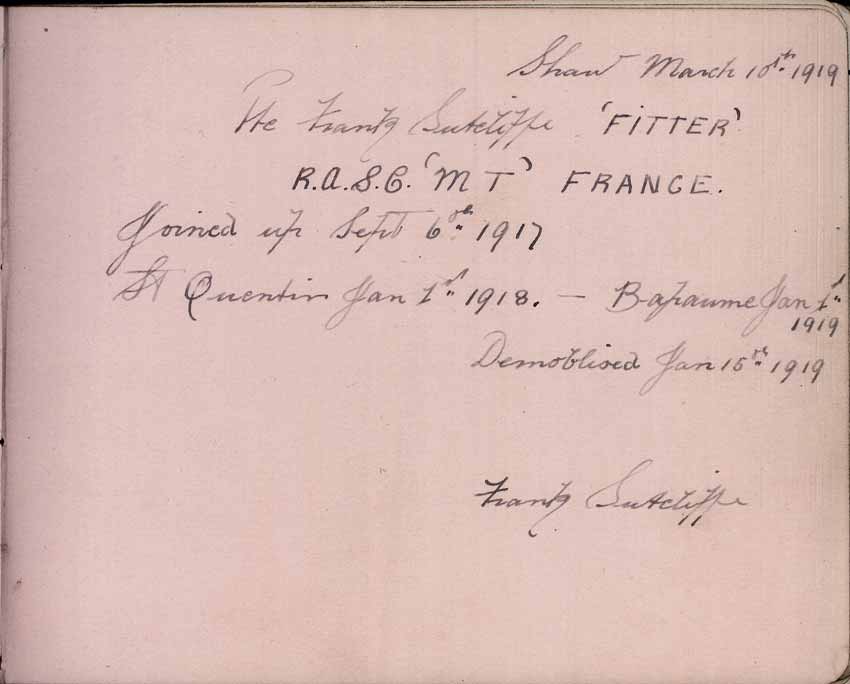 Shaw March 10th 1919
Pte Frank Sutcliffe 'FITTER'
R.A.S.C. 'M T' FRANCE.
Joined up Sept 6th 1917
St Quentin Jan 1st 1918. — Bapaume Jan 1st
1919
Demoblised Jan 15th 1919
Frank Sutcliffe